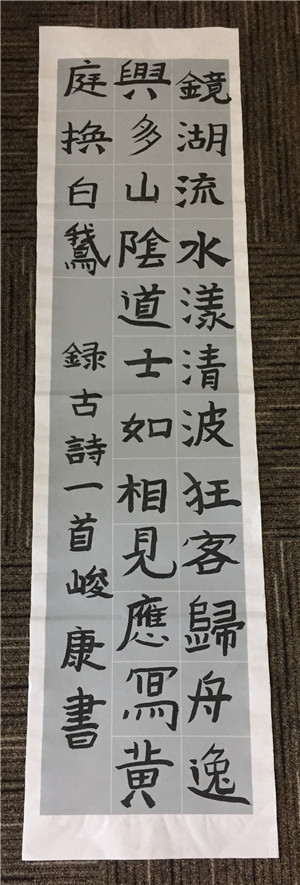 鏡湖流水漾清波狂客歸舟逸
興多山陰道士如相見應寫黄
庭換白鵞
録古詩一首峻康書